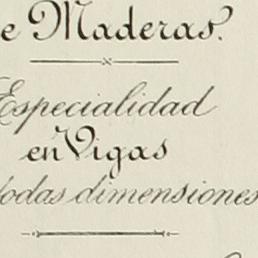 e Maderas.
Especialidad
en Vigas
todas dimensiones